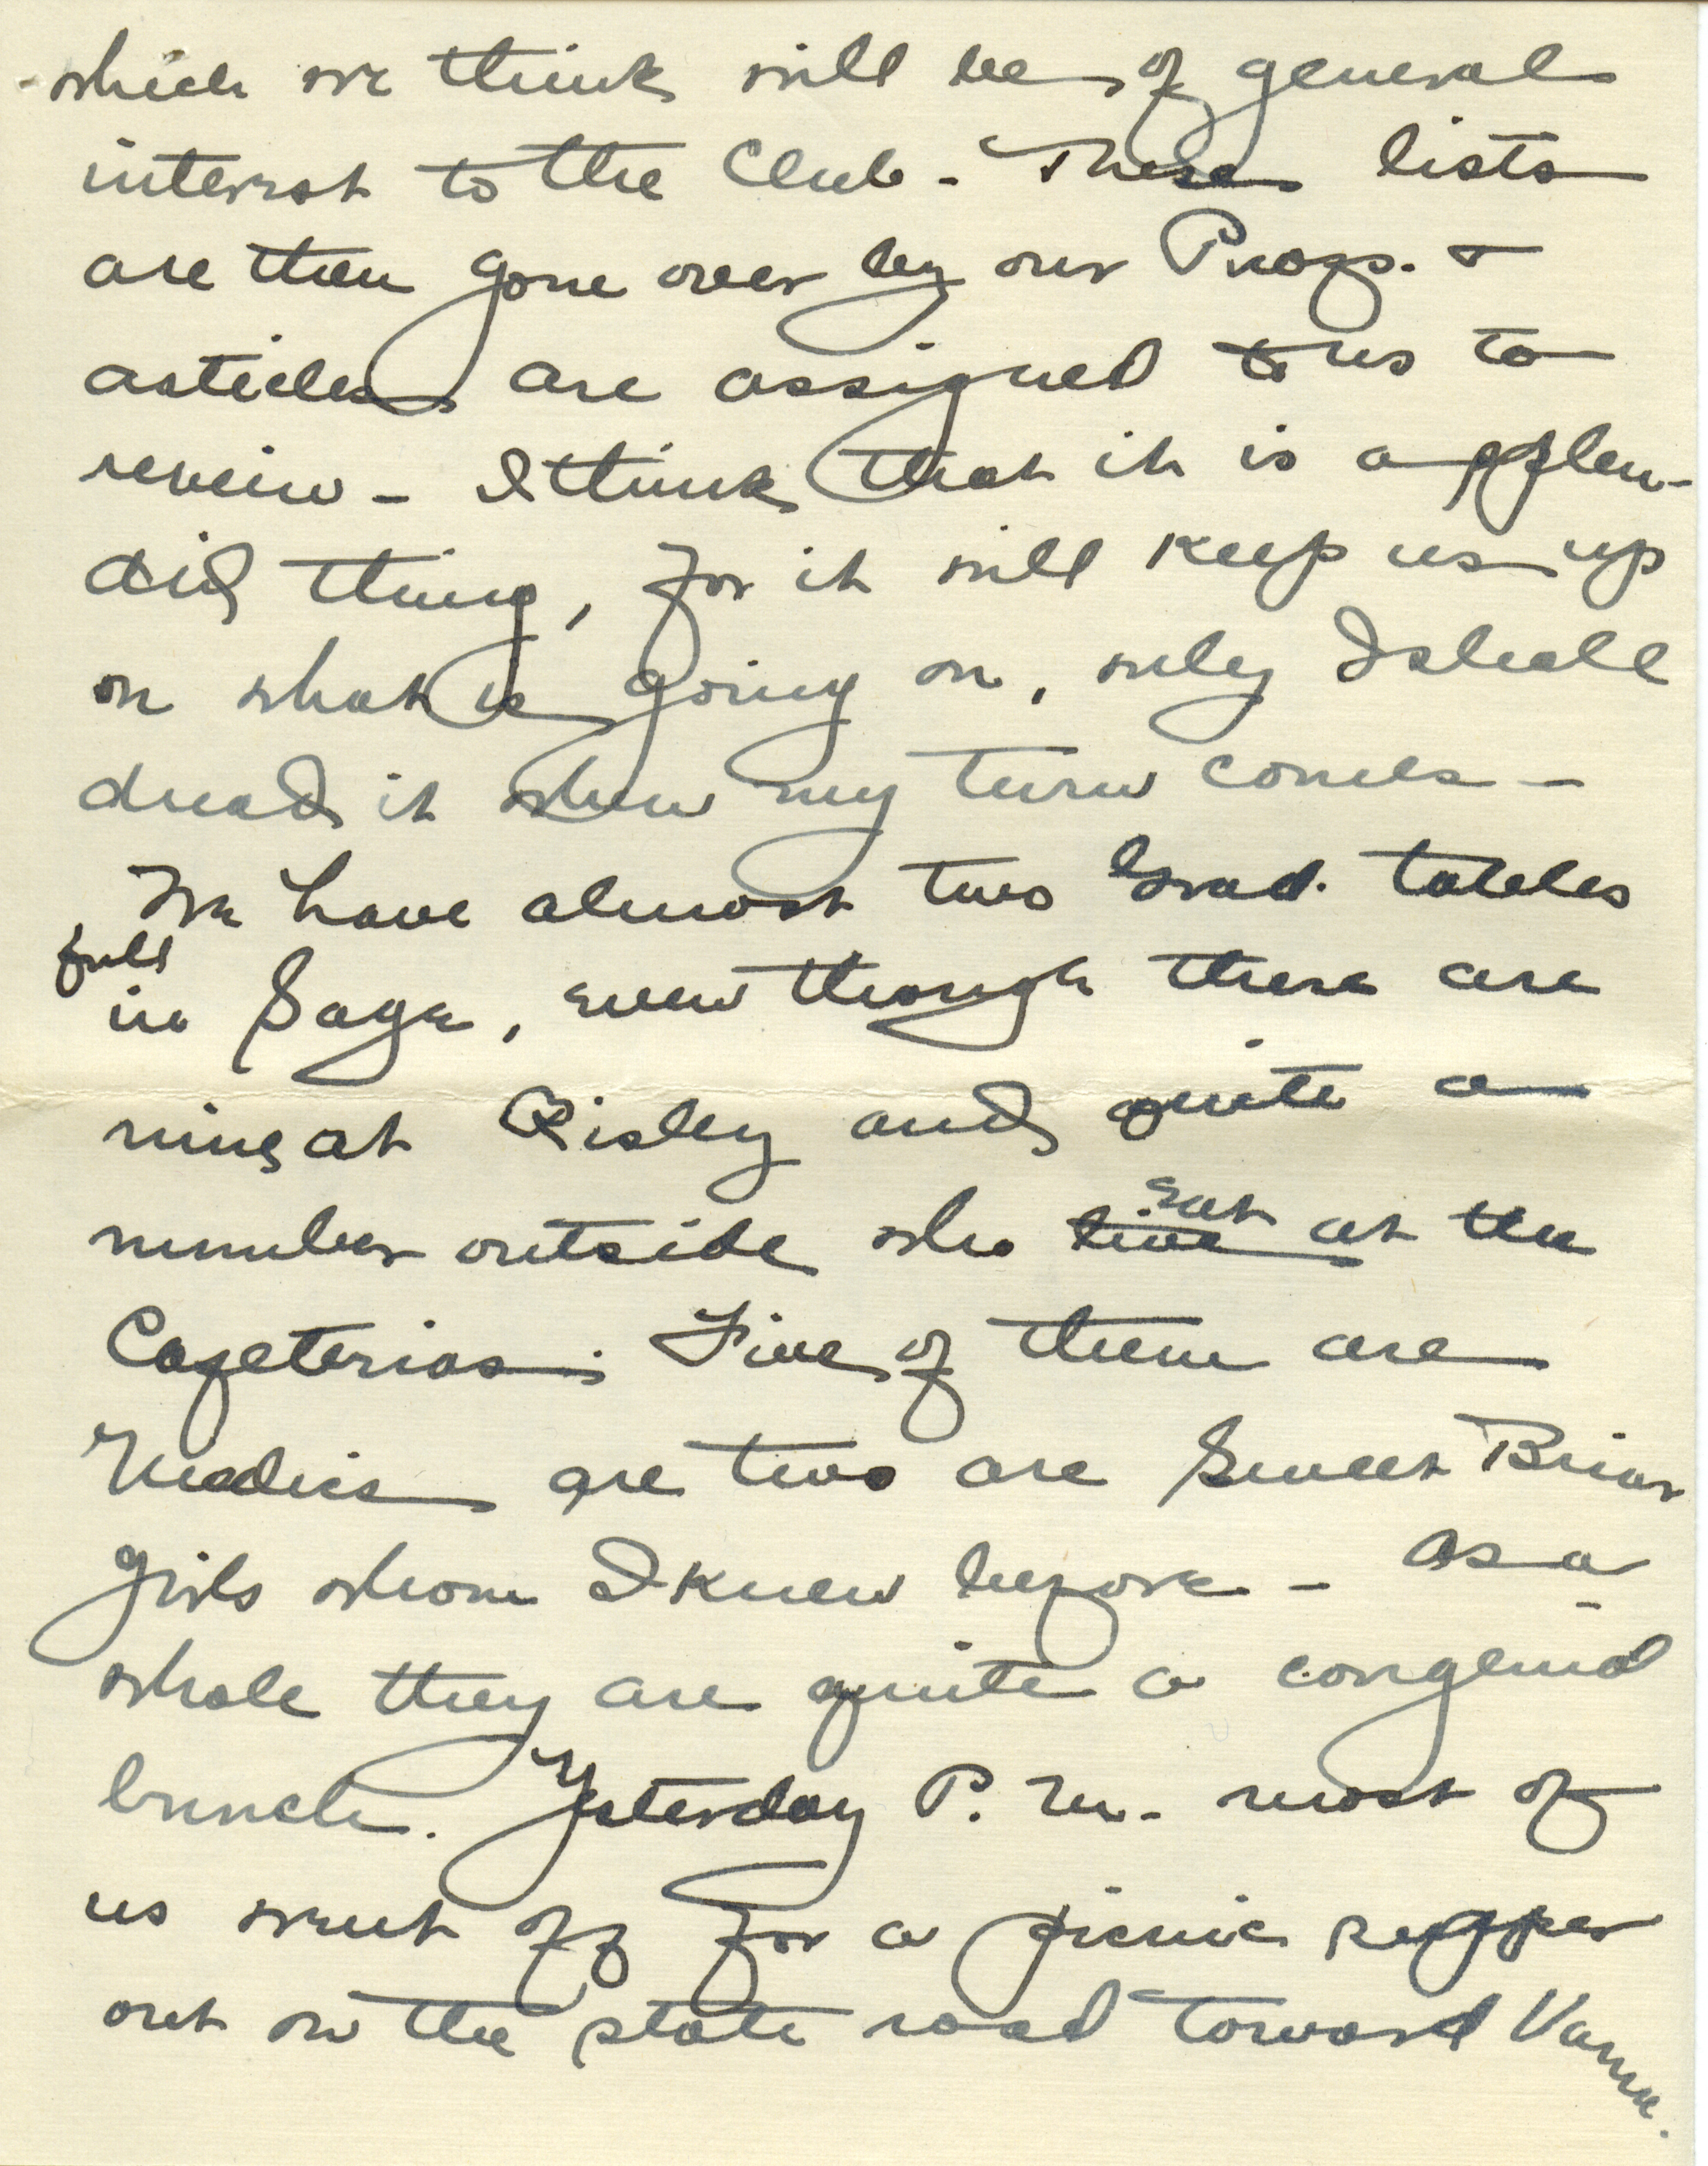 which we think will be of general
interest to the Club - These lists
are then gone over by our Profs. &
articles are assigned to us to
review - I think that it is a splen-
did thing, for it will keep us up
on what is going on, only I shall
dread it when my turn comes -
We have almost two Grad. tables
full
in Sage, even though there are
nine at Risley and quite a
eat
number outside who live at the
Cafeterias. Five of them are
Medics are two are Sweet Briar
girls whom I knew before - as a
whole they are quite a congenial
bunch. Yesterday P. M. most of
us went off for a picnic supper
out on the state road toward Varna.